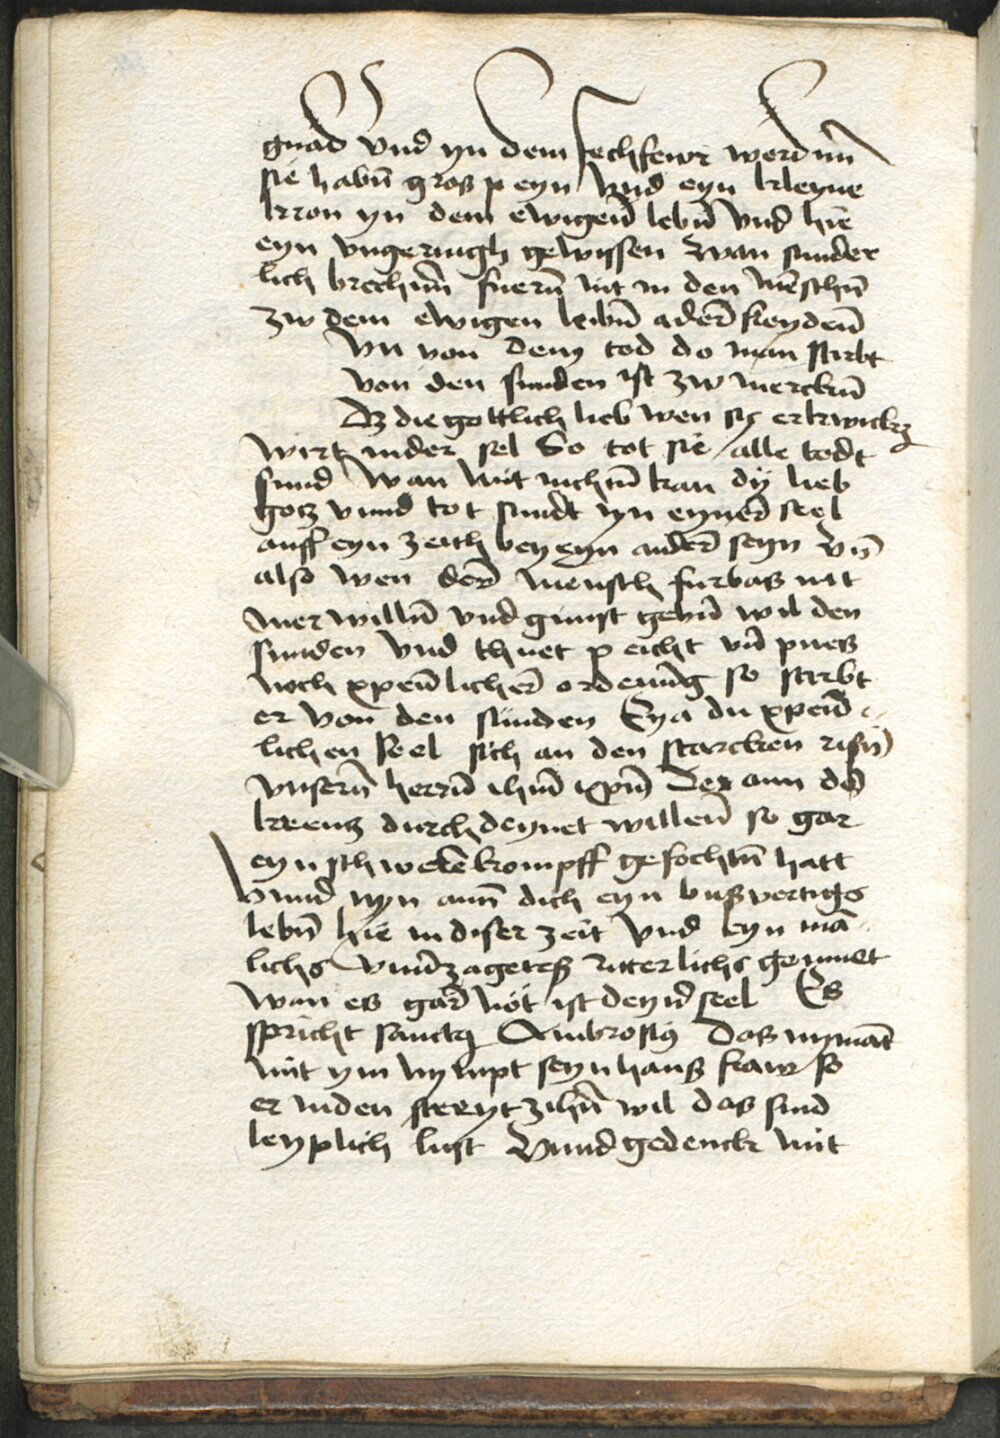 gnad vnd yn dem fechfewr werdnn̄
sie habn̄ gros peyn vnd eyn kleyne
kron yn dem ewigen̄ lebn̄ vnd hie
eyn vngeringh gewissen wan sunder
lich brechnn̄ fuern̄ nit in den mēschn̄
zw dem ewigen leibn̄ ader̄ freyden̄
Vn von dem tod do man stirbt
von den sunden ist zw merckn̄
Dz die gottlich lieb wen sy erkwickt
wirt inder sel So tot sie alle todt
sund Wan mit nichtn̄ kan dy lieb
gotz vnnd tot sundt yn eyner̄ seel
auff eyn zeith bey eyn ander̄ seyn Vn̄
also wen der̄ mensch furbas nit
mer willn̄ vnd gunst gebn̄ wil den
sunden vnd thuet peicht vn̄ pues
noch xpen̄licher̄ ordenūg so stirbt
er von den sunden Eya du xpen̄
lichen seel sich an den starcken risn̄
vnsern̄ herrn̄ ihm̄ xpm̄ Der ann dē
kreutz durch deynet willen̄ so gar
eyn schwerē kompff gefochtn̄ hatt
Vnnd nyn ann̄ dich eyn busvertigs
lebn̄ hie in diser zeit vnd eyn mā
lichs vnūzagetes ritterlichs gemuet
wan es gar̄ not ist deyn̄ seel Es
spricht sanctus Ambrosius das nymāt
mit ym nympt seyn hausfraw so
er inden streyt zihn̄ wil das sind
leyplich lust Vnnd gedenck mit